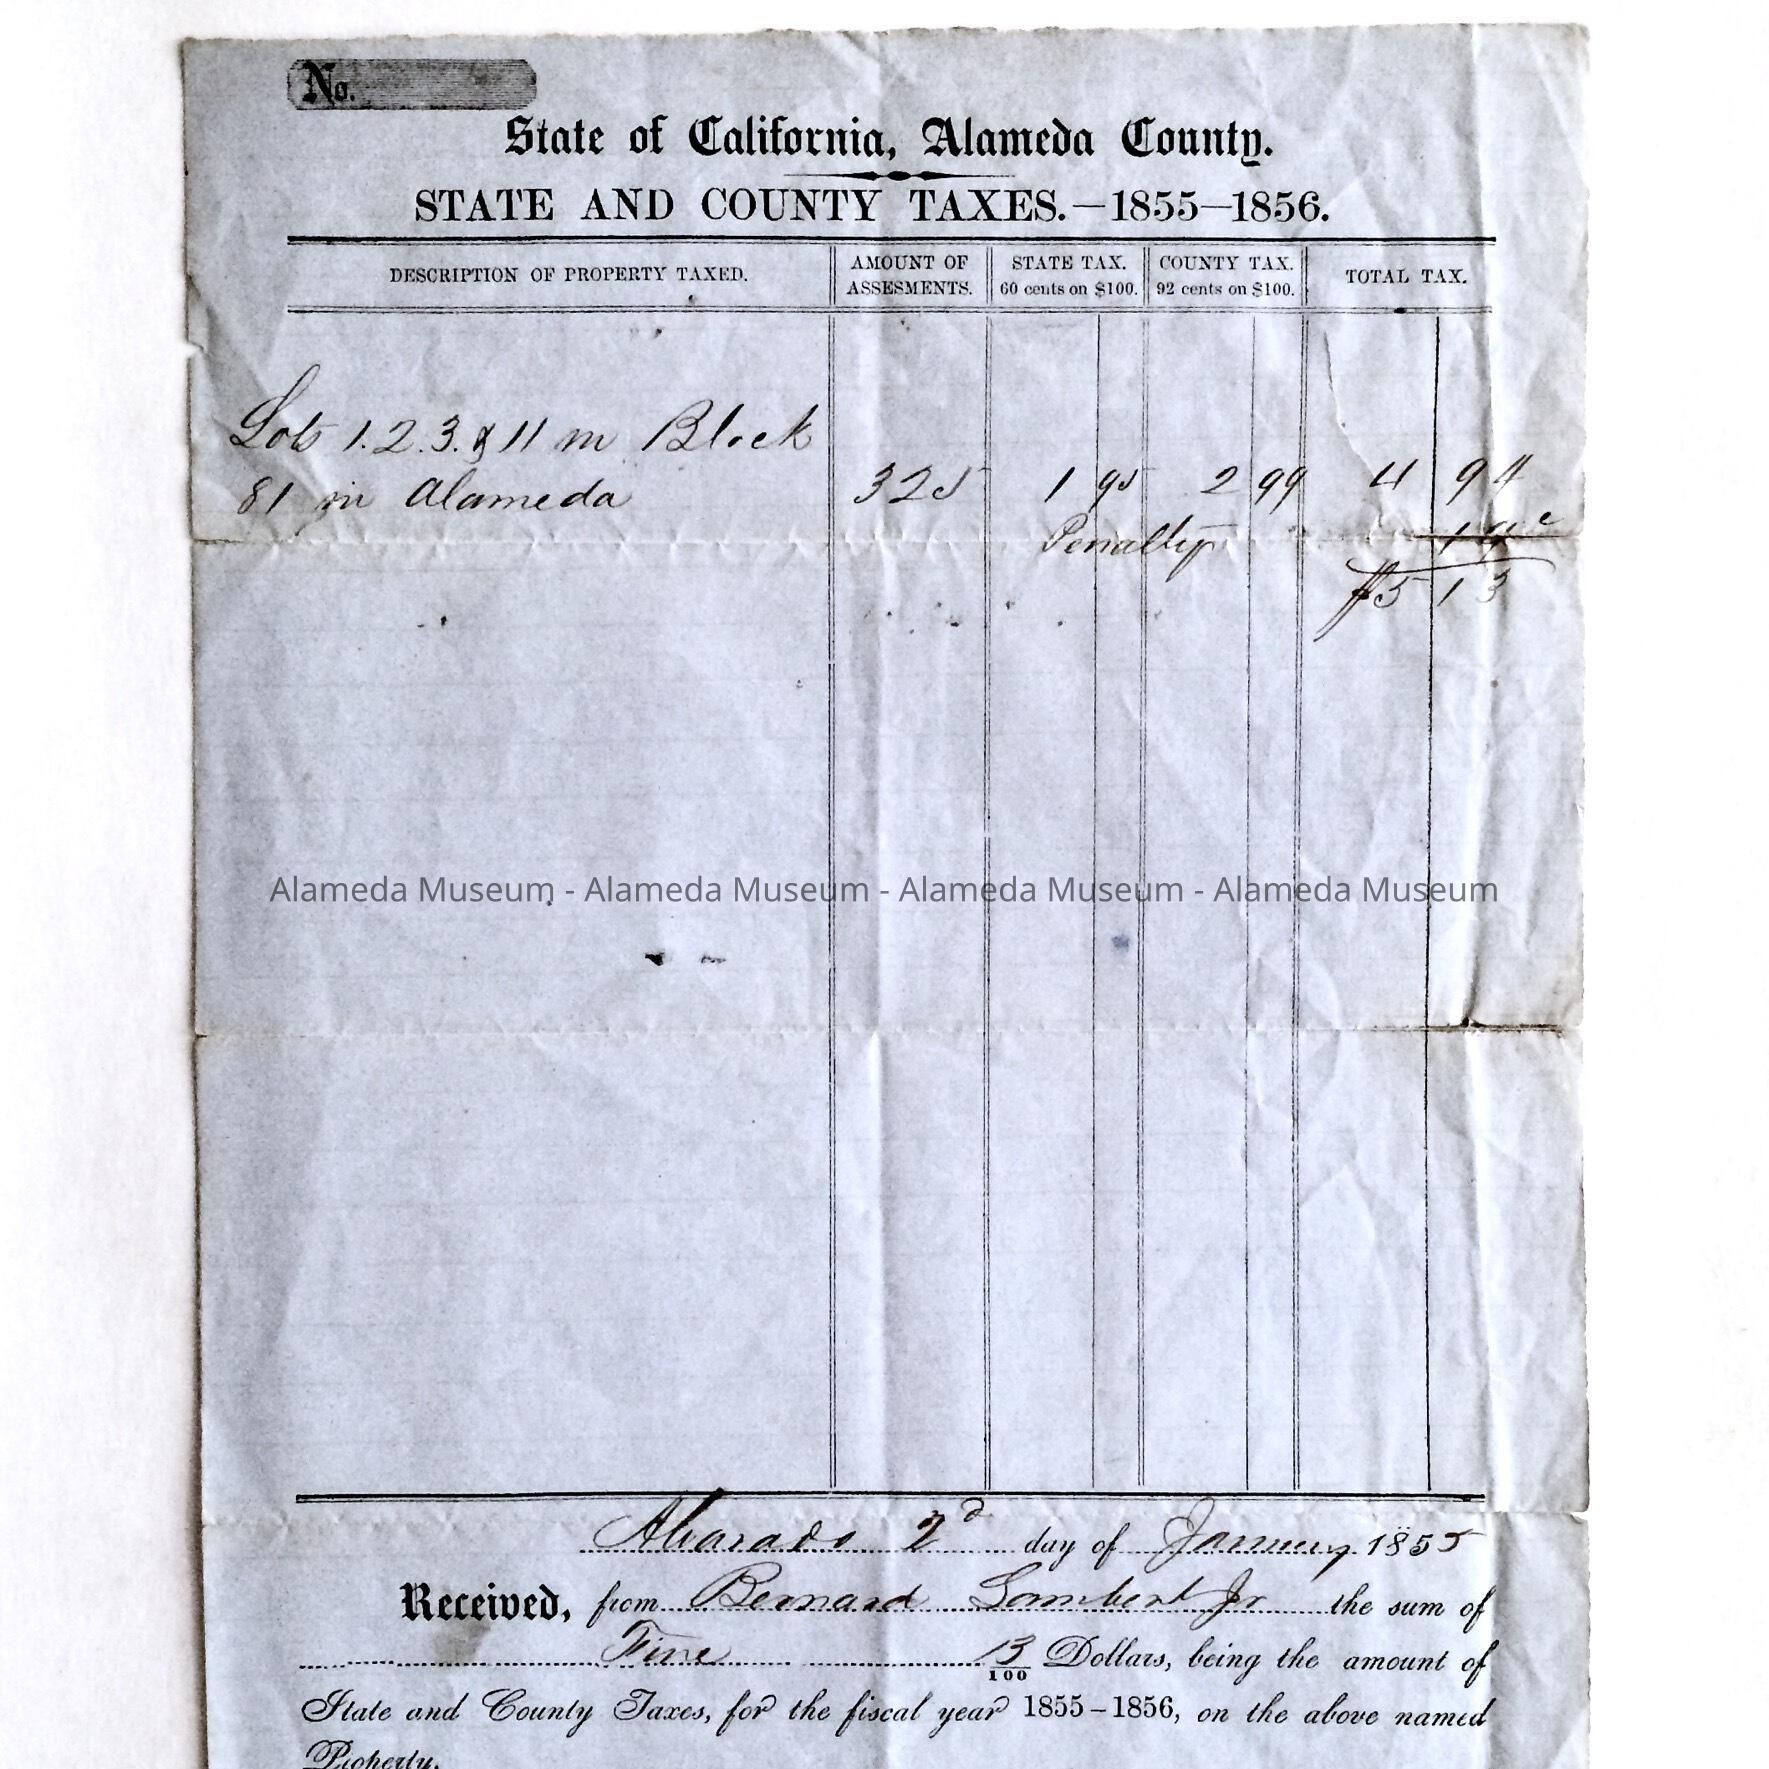 No.
State of California, Alameda County.
STATE AND COUNTY TAXES.—1855—1856.
DESCRIPTION OF PROPERTY TAXED. AMOUNT OF ASSESMENTS. STATE TAX. 60 cents on $100. COUNTY TAX. 92 cents on $100. TOTAL TAX.
Lots 1.2.3. & 11 in Block
81 in Alameda 325 1 95 2 99 4 94
Penalty 19c
$5 13
Alameda Museum - Alameda Museum - Alameda Museum - Alameda Museum
Alvarado 2d day of January 1855
Received, from Bernard Lambert Jr the sum of
Five 13/100 Dollars, being the amount of
State and County Taxes, for the fiscal year 1855-1856, on the above named
Property.